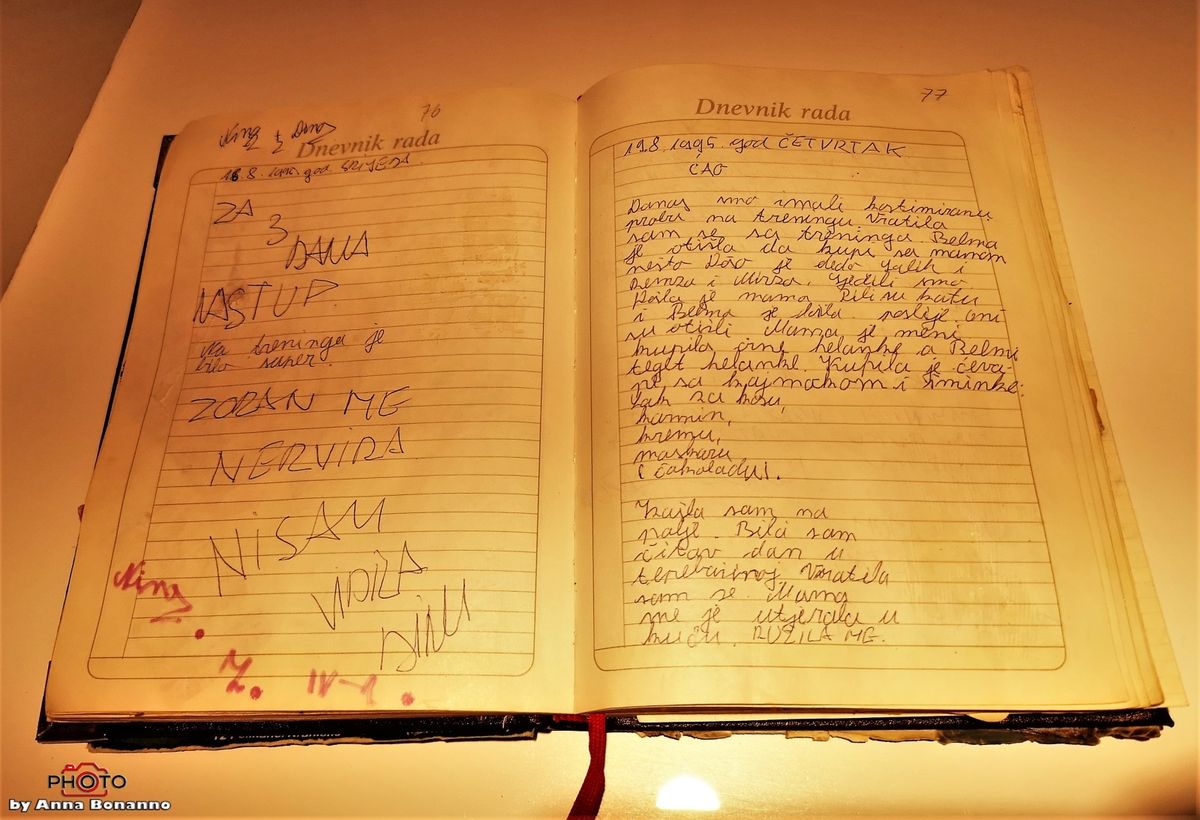 76
Nina Z
Dnevnik rada
16.8. 1995. god SRIJEDA.
ZA
3
DANA
NASTUP.
Na treningu je
bilo super.
ZORAN ME
NERVIRA
NISAM
VIDILA
DINU
Nina
Z.
Z. IV-1.
77
Dnevnik rada
19.8. 1995. god ČETVRTAK.
ĆAO
Danas smo imali kostimiranu
probu na treningu Vratila
sam se sa treninga. Belma
je otišla da kupi sa mamom
nešto Došo je dedo Salih i
Remza i Mirza. Sjedili smo
Došla je mama. Pili su kafu
i Belma je bila. poslije oni
su otišli Mama je meni
kupila crne helanke a Belmi
teget helanke. Kupila je ćeva-
pe sa kajmakom i šminke:
lak za kosu,
karmin,
kremu,
maskaru
i čokoladu.
Izašla sam na
polje. Bila sam
čitav dan u
Vratila
sam se. Mama
me je utjerala u
kuću. RUŽILA ME.
PHOTO
by Anna Bonanno